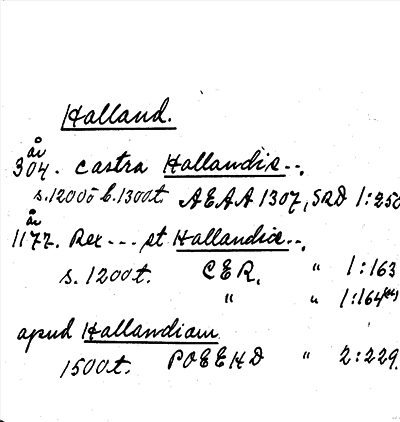 Halland.
år
304. castra Hallandis --.
s. 1200 o b. 1300t. AEAA 1307, SRD 1:250
år
1177. Rex --- et Hallandie --.
s. 1200t. CER. " 1:163
" " 1:164
apud Hallandiam
1500t. POEEHD " 2:229.